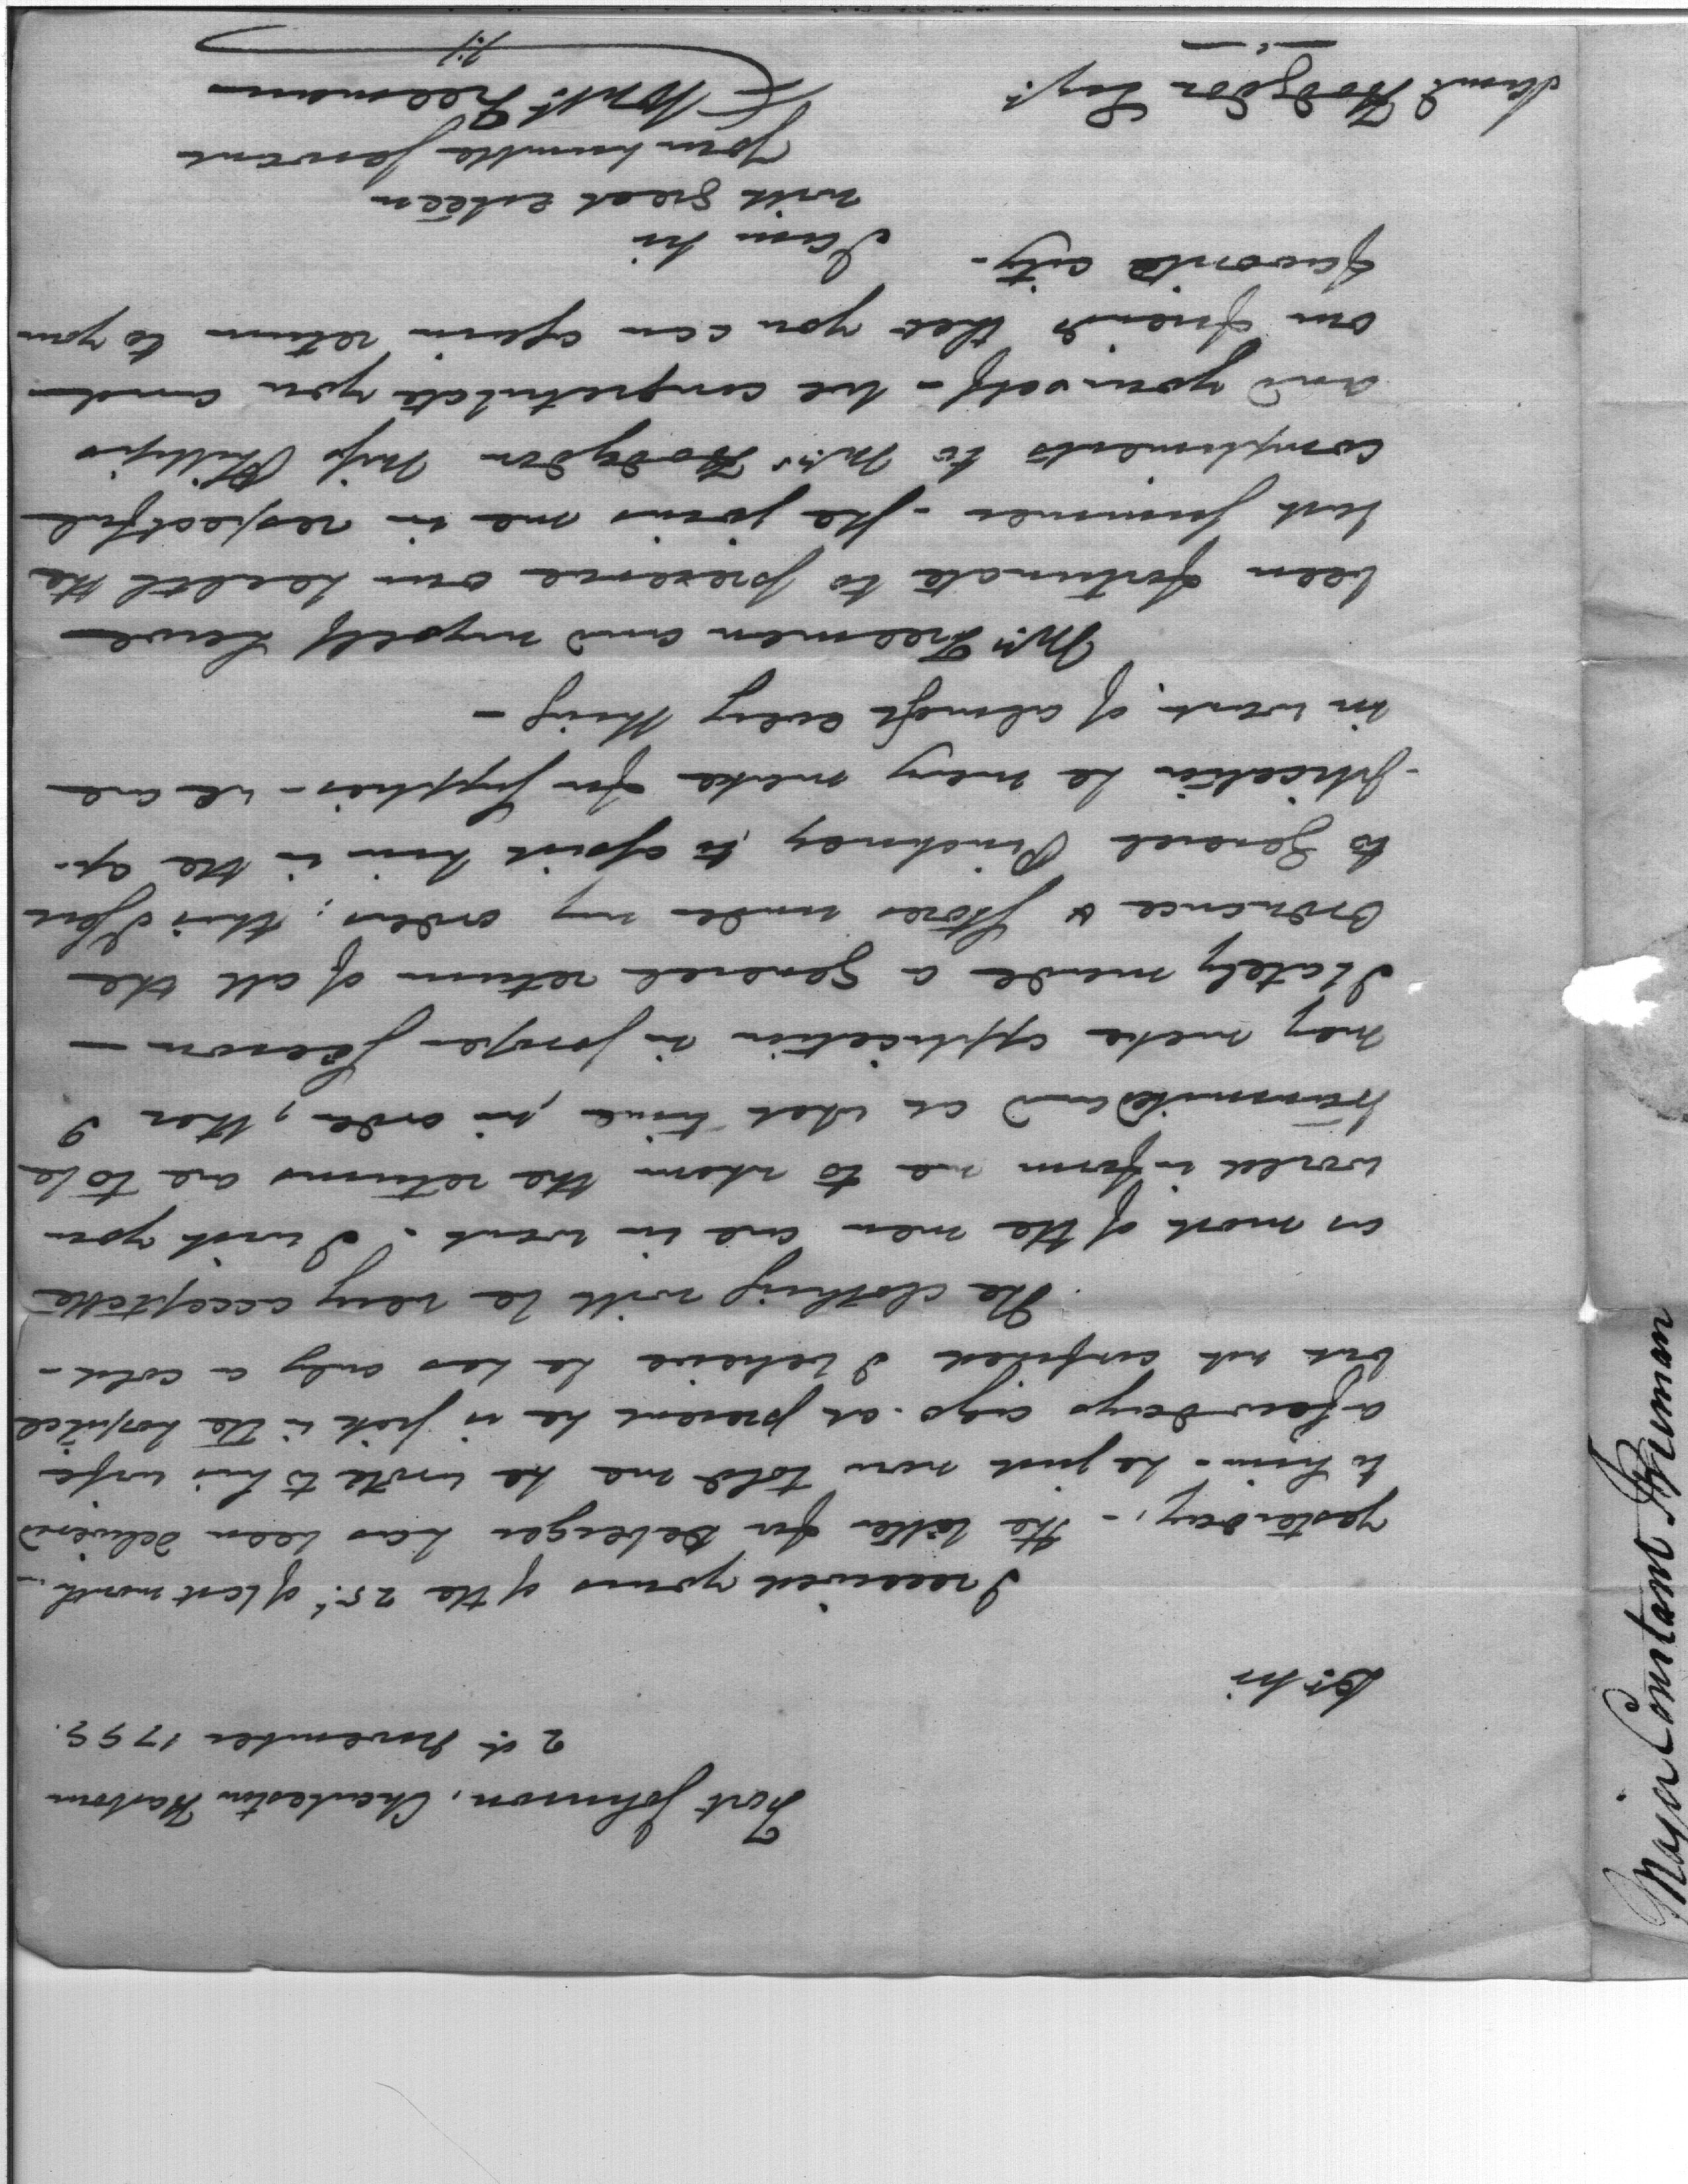 Fort Johnson, Charleston Harbour
2d November 1799.
Dr Sir
I received yours of the 25t of last month
yesterday, - the letter for Deberger has been delivered
to him - he just now told me he wrote to his wife
a few days ago. at present he is sick in the hospital
but not confined I believe he has only a cold -
The clothing will be very acceptable
as most of the men are in want. I wish you
would inform me to whom the returns are to be
transmitted and at what time, in order, that I
may make application in proper season -
I lately made a general return of all the
Ordnance & Stores under my orders; this I sent
to General Pinckney, to assist him in the ap-
-plication he may make for supplies - we are
in want of almost every thing -
Mrs Freeman and myself have
been fortunate to preserve our health the
last summer - she joins me in respectful
compliments to Mrs Hodgdon Miss Phillips
and yourself - we congratulate you and
our friends that you can again return to your
favorite city -
I am Sir
with great esteem
your humble servant
Constt Freeman
Saml Hodgdon Esqr
Major Constant Freeman